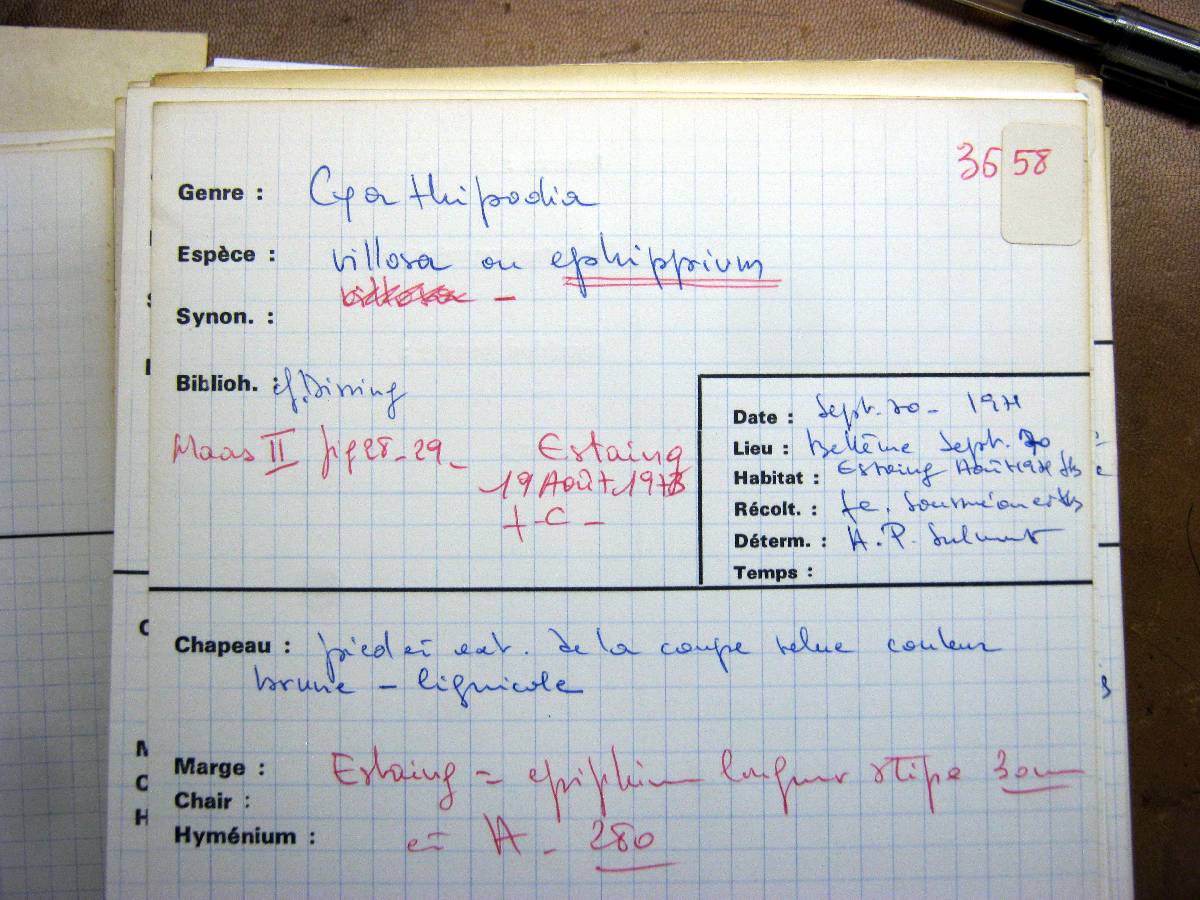 36 58
Genre : Cyathipodia
Espèce : villosa ou ephippium
villosa -
Synon. :
Biblioh. : cf. Dissing
Maas II fig 28-29_
Estaing
19 Août 197
+ C -
Date : Sept. 70 - 1971
Lieu : Bellême Sept. 70
Habitat : Estaing Août
Récolt. :
Déterm. : A. P.
Temps :
Chapeau : pied et ext. de la coupe velue couleur
brune - lignicole
Marge : Estaing = epiphium longueur stipe 3 cm
Chair :
Hyménium : et A - 280